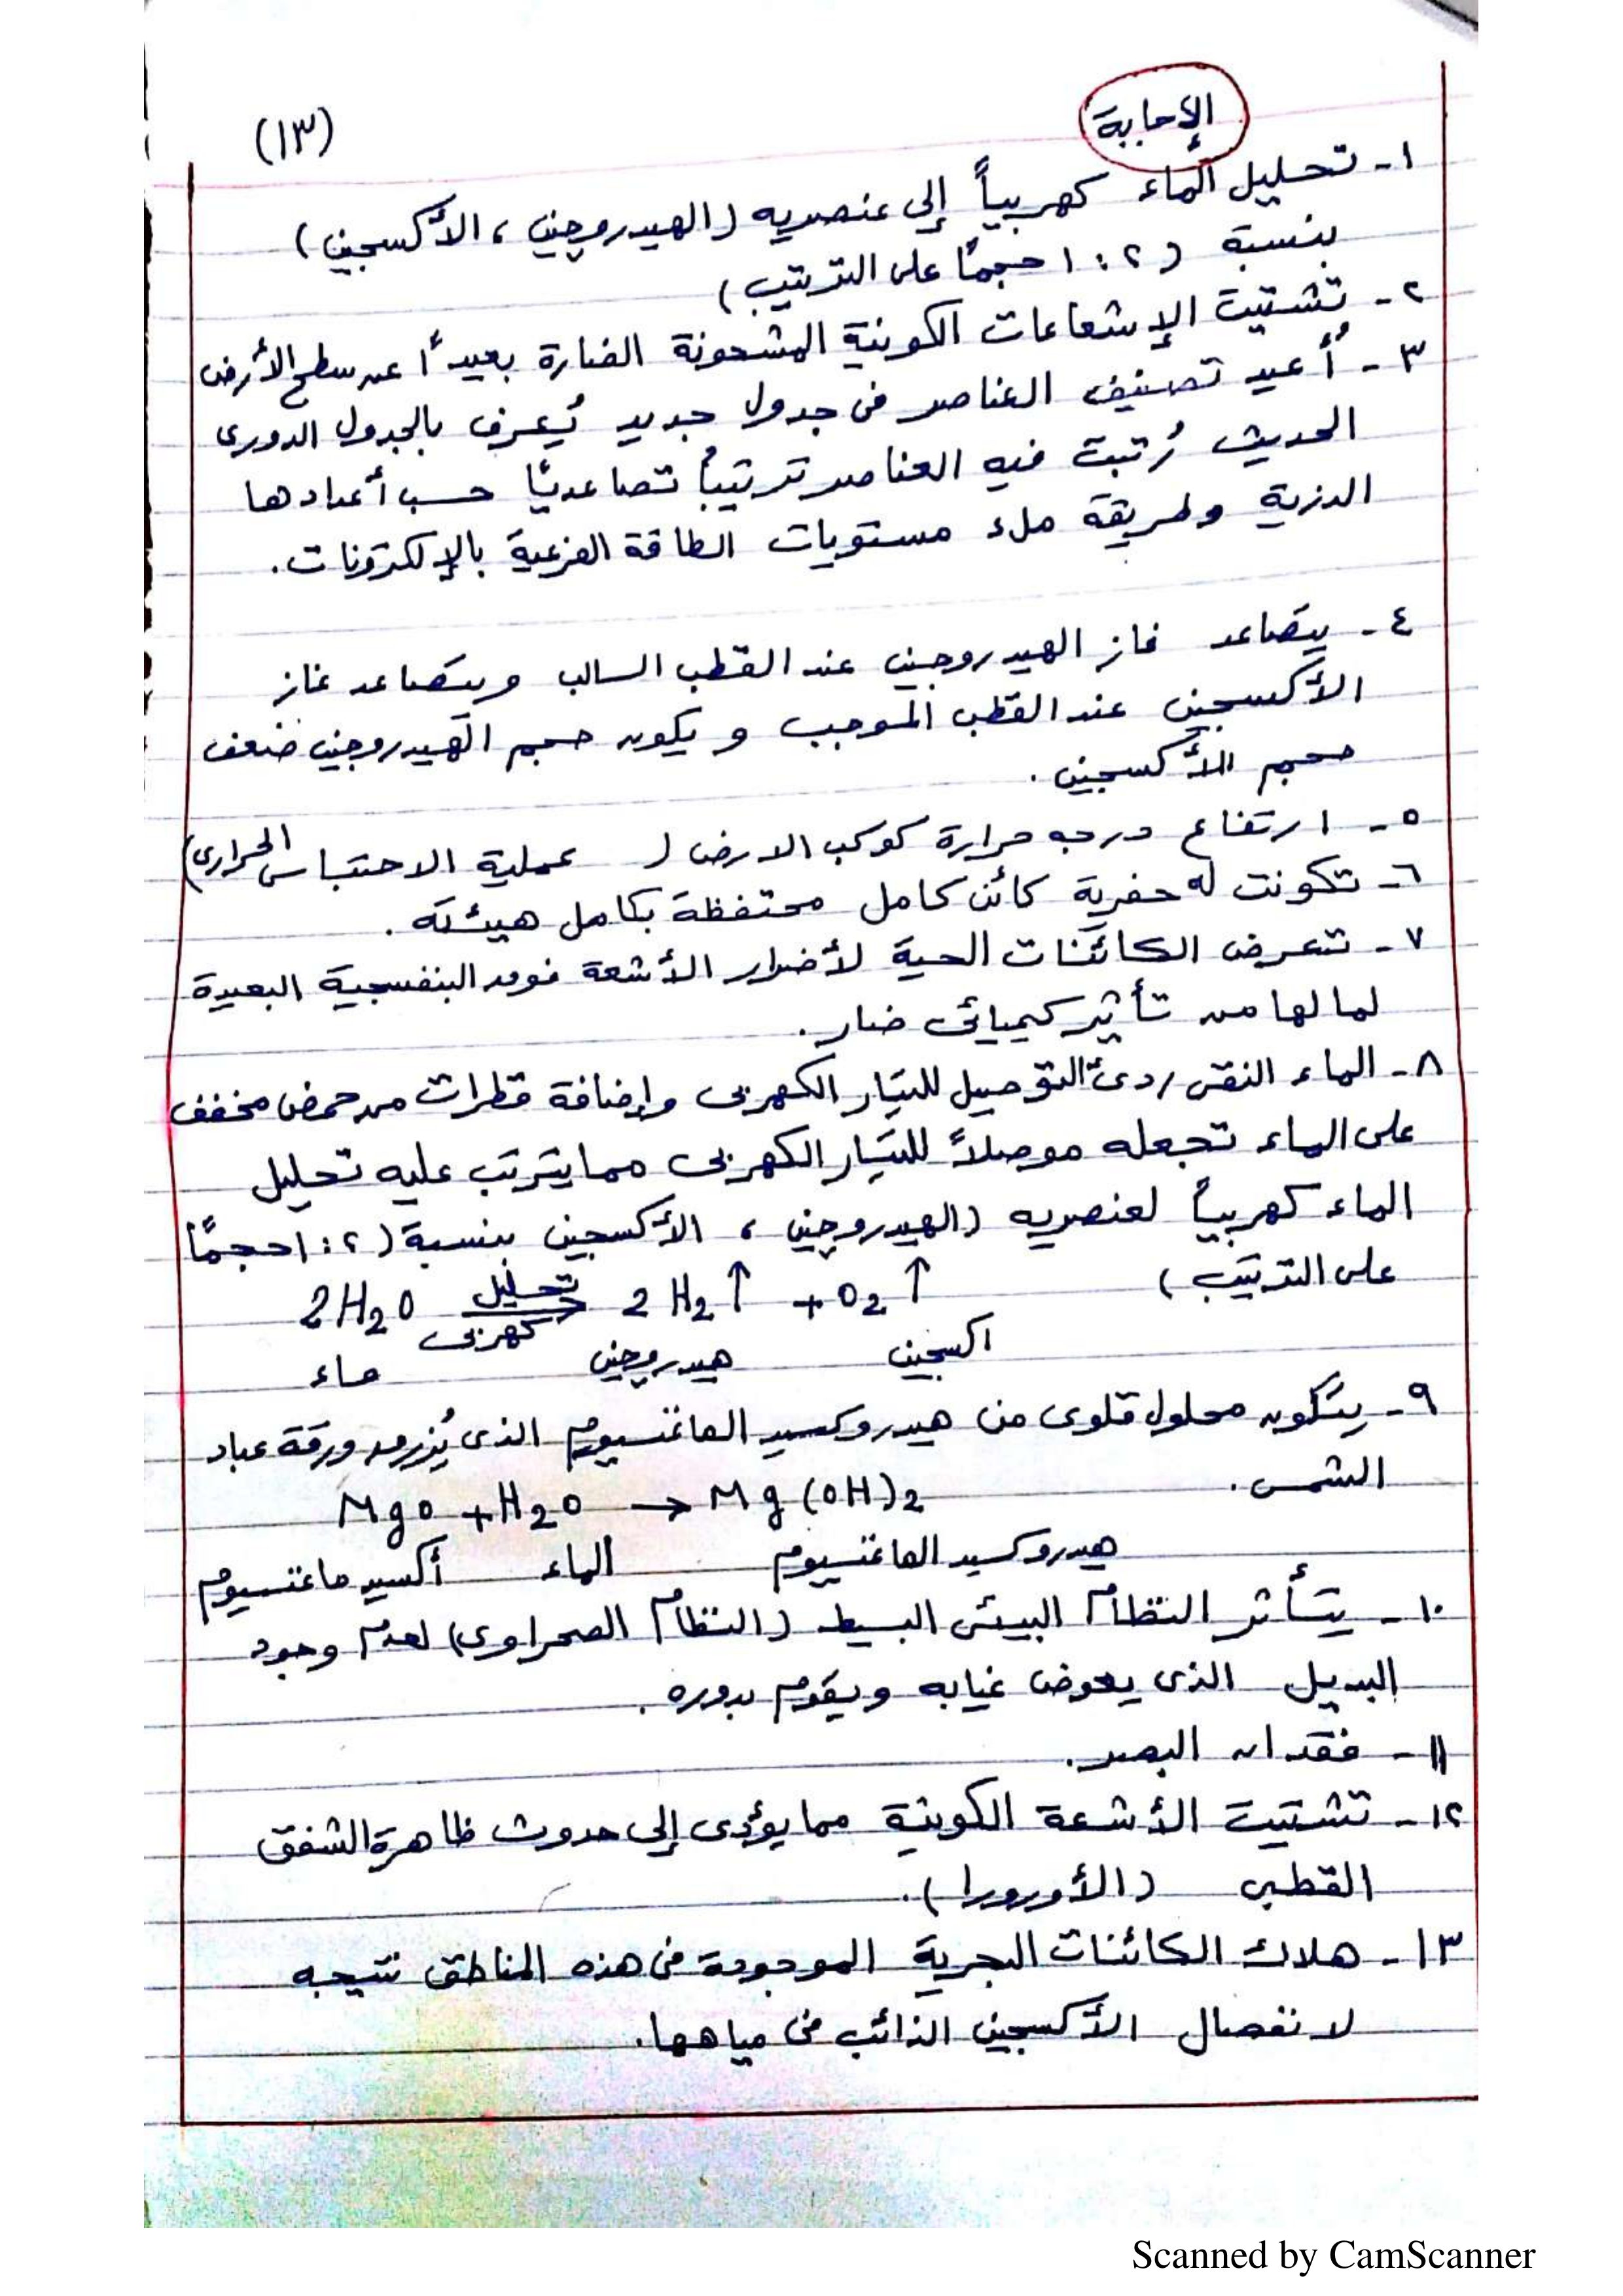 (١٣)
الإجابة
١- تحليل الماء كهربياً إلى عنصريه (الهيدروجين، الأكسجين)
بنسبة (٢ : ١ حجمًا على الترتيب)
٢- تشتيت الإشعاعات الكونية المشحونة الضارة بعيدًا عن سطح الأرض
٣- أُعيد تصنيف العناصر فى جدول جديد يُعرف بالجدول الدورى
الحديث رُتبت فيه العناصر ترتيباً تصاعديًا حسب أعدادها
الذرية وطريقة ملء مستويات الطاقة الفرعية بالإلكترونات.
٤- يتصاعد غاز الهيدروجين عند القطب السالب ويتصاعد غاز
الأكسجين عند القطب الموجب ويكون حجم الهيدروجين ضعف
حجم الأكسجين.
٥- ارتفاع درجه حرارة كوكب الارض ( عملية الاحتباس الحرارى)
٦- تكونت له حفرية كائن كامل محتفظة بكامل هيئته.
٧- تتعرض الكائنات الحية لأضرار الأشعة فوق البنفسجية البعيدة
لما لها من تأثير كيميائى ضار.
٨- الماء النقى ردئ التوصيل للتيار الكهربى وإضافة قطرات من حمض مخفف
على الماء تجعله موصلاً للتيار الكهربى مما يترتب عليه تحليل
الماء كهربياً لعنصريه (الهيدروجين، الأكسجين بنسبة (٢ : ١ حجمًا
على الترتيب)
2H2O تحليل كهربى 2H2↑ + O2↑
ماء هيدروجين اكسجين
٩- يتكون محلول قلوى من هيدروكسيد الماغنسيوم الذى يُزرق ورقة عباد
الشمس.
MgO + H2O → Mg(OH)2
أكسيد ماغنسيوم الماء هيدروكسيد الماغنسيوم
١٠- يتأثر النظام البيئى البسيط (النظام الصحراوى) لعدم وجود
البديل الذى يعوض غيابه ويقوم بدوره.
١١- فقدان البصر.
١٢- تشتيت الأشعة الكونية مما يؤدى إلى حدوث ظاهرة الشفق
القطبى (الأورورا).
١٣- هلاك الكائنات البحرية الموجودة فى هذه المناطق نتيجه
لانفصال الأكسجين الذائب فى مياهها.
Scanned by CamScanner